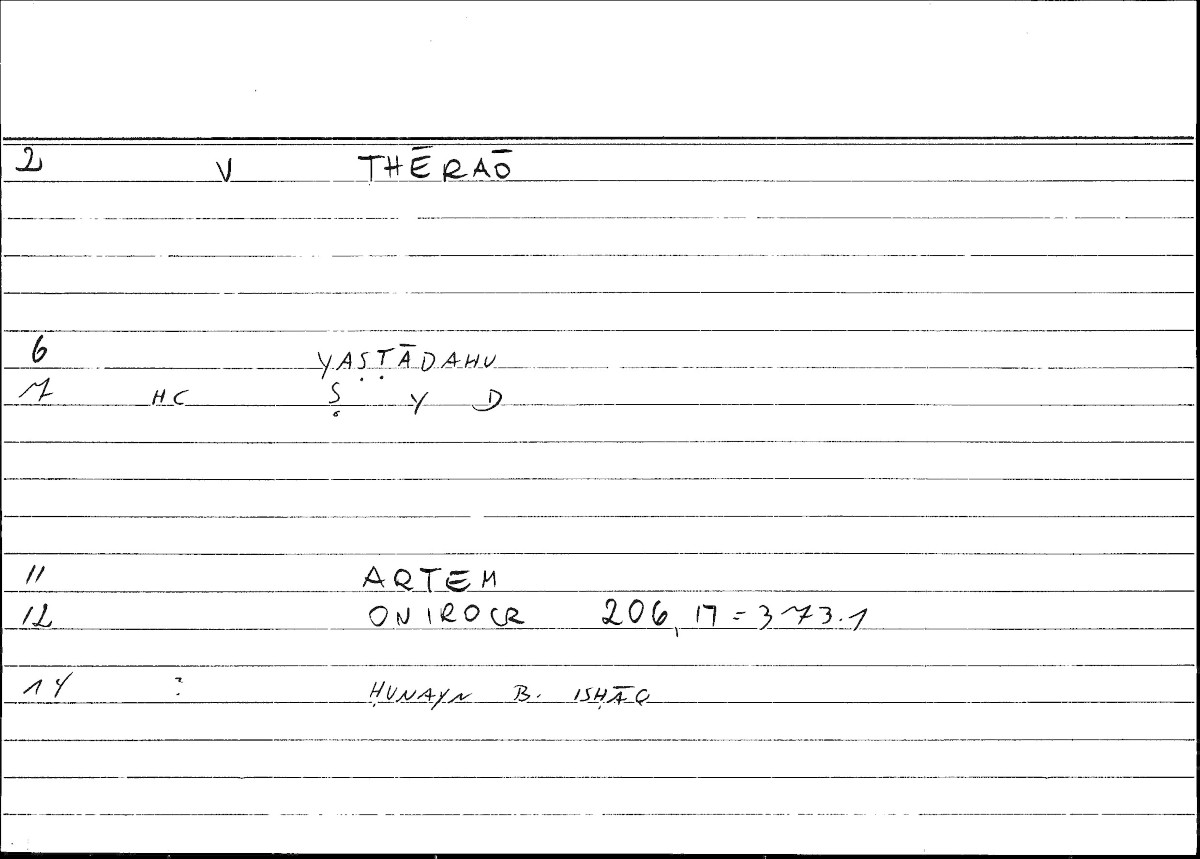 2 V THĒRAŌ
6 YAṢṬĀDAHU
7 HC Ṣ Y D
11 ARTEM
12 ONIROCR 206,17=373.1
14 ? ḤUNAYN B. ISḤĀQ